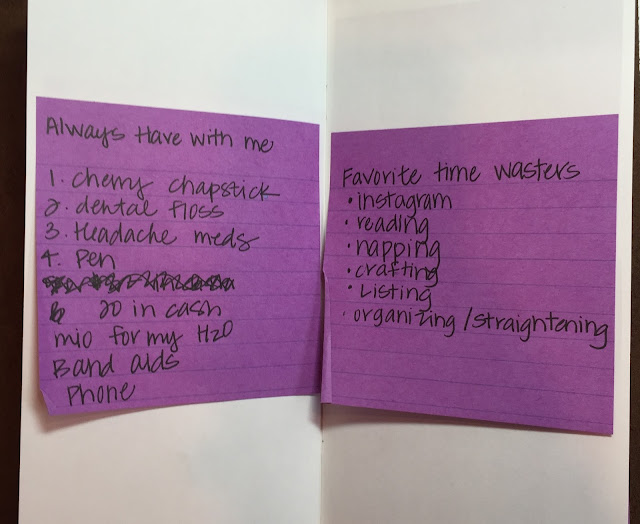 Always Have with me
1. cherry chapstick
2. dental floss
3. Headache meds
4. Pen
20 in cash
mio for my H2O
Band aids
Phone
Favorite time wasters
• instagram
• reading
• napping
• crafting
• Listing
• organizing / straightening